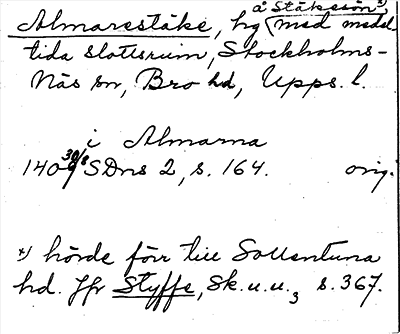 å Stäksön *)
Almarestäke, hg (med medel-
tida slottsruin, Stockholms-
Näs sn, Bro hd, Upps. l.
i Almarna
1409 30/8 SDns 2, s. 164. orig.
*) hörde förr till Sollentuna
hd. Jfr Styffe, Sk.u.u.3 s. 367.